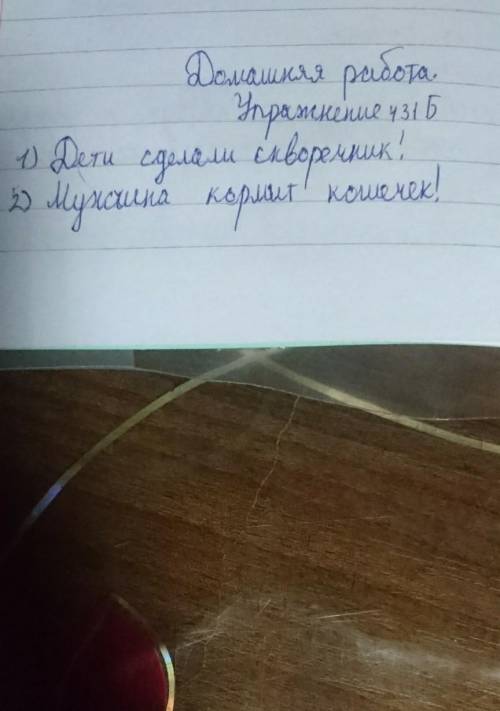 Домашняя работа.
Упражнение 431 Б
1) Дети сделали скворечник!
2) Мужчина кормит кошечек!